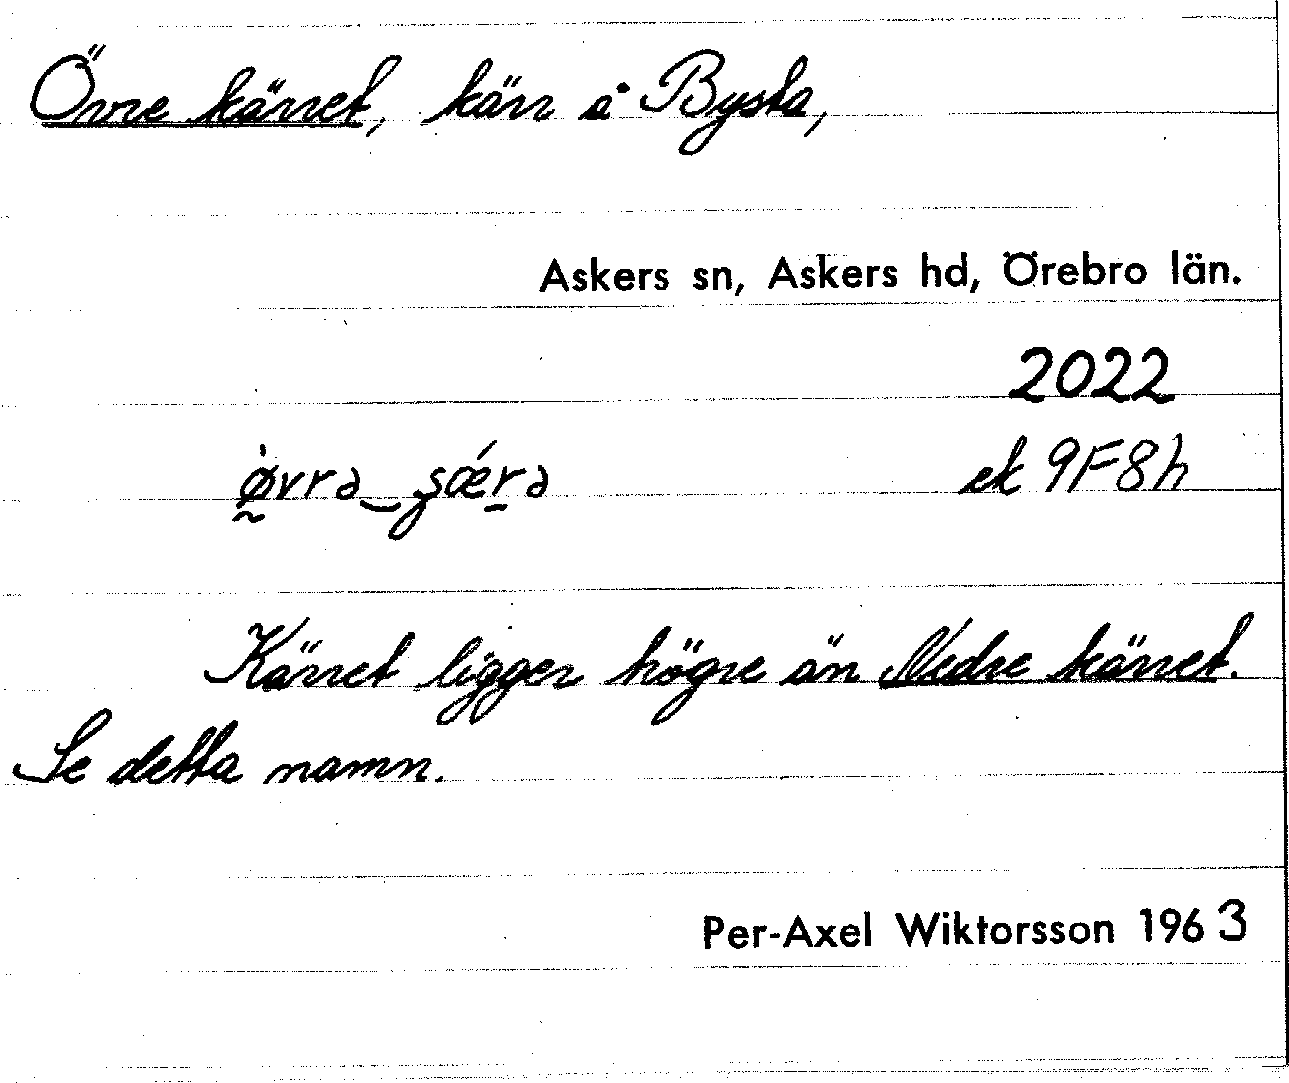 Övre kärret, kärr å Bysta,
Askers sn, Askers hd, Örebro län.
2022
ek 9F8h
Kärret ligger högre än Nedre kärret.
Se detta namn.
Per-Axel Wiktorsson 1963